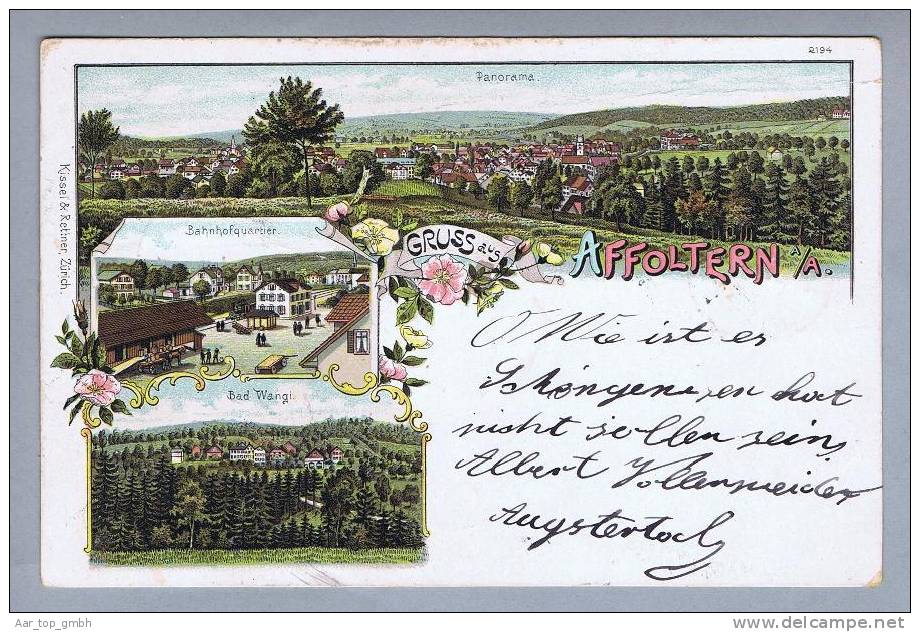 2194
Panorama.
Kissel & Rettner, Zürich.
Bahnhofquartier.
GRUSS aus
AFFOLTERN a/A.
Bad Wangi.
O Wie ist es
en hat
nicht sollen sein,
Albert Vollenweider
Aar_top_gmbh
www.delcampe.net